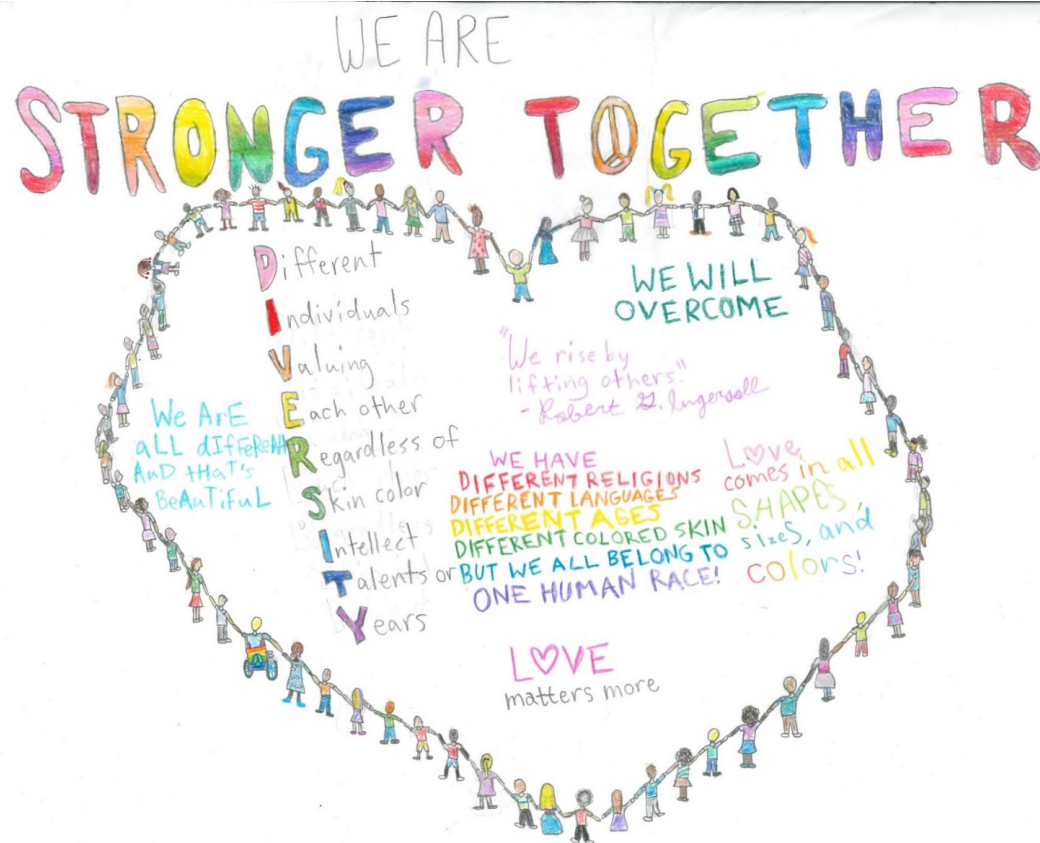 WE ARE
STRONGER TOGETHER
Different
Individuals
Valuing
Each other
Regardless of
Skin color
Intellect
Talents or
Years
WE WILL
OVERCOME
"We rise by
lifting others."
- Robert G. Ingersoll
We ArE
aLL dIfFeReNt
AnD tHaT's
BeAuTiFuL
WE HAVE
DIFFERENT RELIGIONS
DIFFERENT LANGUAGES
DIFFERENT AGES
DIFFERENT COLORED SKIN
BUT WE ALL BELONG TO
ONE HUMAN RACE!
LOVE
comes in all
SHAPES,
sizeS, and
colors!
LOVE
matters more